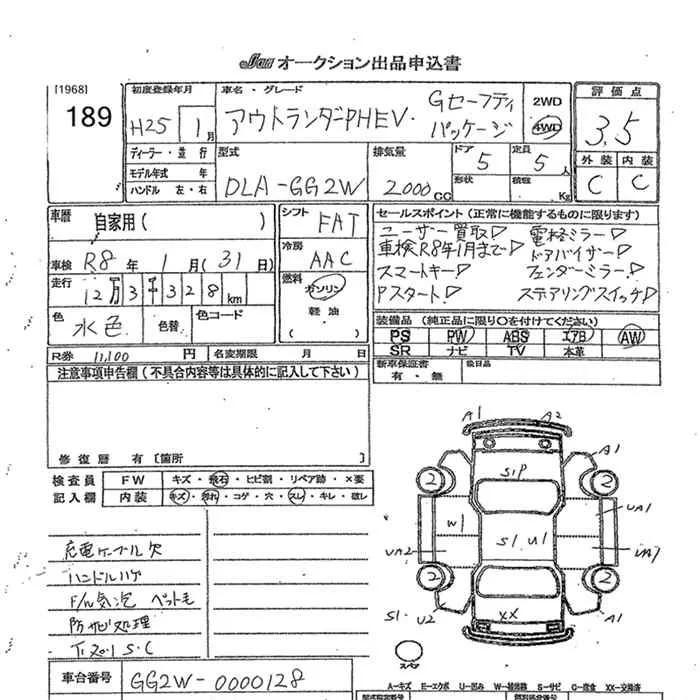 Jan オークション出品申込書
[1968]
189
初度登録年月
H25 1月
車名・グレード
アウトランダーPHEV. Gセーフティパッケージ
2WD
4WD
評価点
3.5
外装 内装
C C
ディーラー・並行
モデル年式 年
ハンドル 左・右
型式
DLA-GG2W
排気量
2000cc
ドア 5
形状
定員 5人
積載 Kg
車歴 自家用( )
車検 R8年1月(31日)
走行
12万3千328km
色 水色
色替
色コード
シフト FAT
冷房 AAC
燃料 ガソリン
軽油
( )
セールスポイント(正常に機能するものに限ります)
ユーザー買取▷
車検R8年1月まで▷
スマートキー▷
Pスタート▷
電格ミラー▷
ドアバイザー▷
フェンダーミラー▷
ステアリングスイッチ▷
装備品(純正品に限り○を付けてください)
PS PW ABS エアB AW
SR ナビ TV 本革
新車保証書
有・無
R券 11,100円
名変期限 月 日
注意事項申告欄(不具合内容等は具体的に記入して下さい)
修復歴 有[箇所 ]
検査員 記入欄
FW キズ・飛石・ヒビ割・リペア跡・×要
内装 キズ・汚れ・コゲ・穴・スレ・キレ・破レ
充電ケーブル欠
ハンドルハゲ
F/ル気泡 ペット毛
防サビ処理
下廻りS.C
車台番号 GG2W-0000128
A1 A2
A1
S1P
2 2
W1
S1 U1
UA1
UA2
UA7
2 2
S1. U2
XX
A1
スペア
A=キズ E=エクボ U=凹み W=補修跡 S=サビ C=腐食 XX=交換済